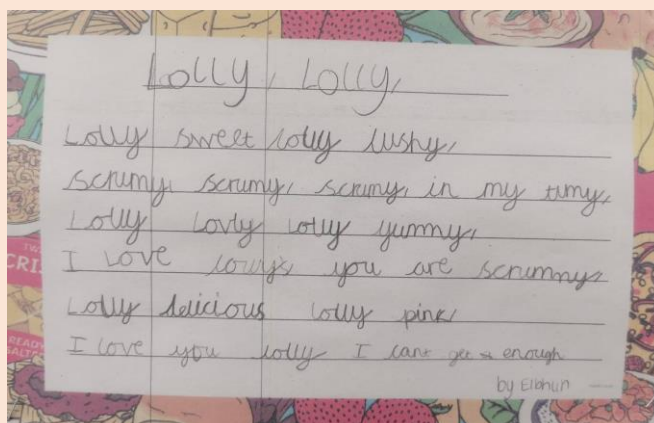 Lolly, Lolly,
Lolly sweet lolly lushy,
scrumy, scrumy, scrumy, in my tumy,
Lolly Lovly Lolly yummy,
I Love lolly's you are scrummy,
Lolly delicious lolly pink,
I Love you lolly I cant get enough
by
TW
CRIS
READY
SALTE